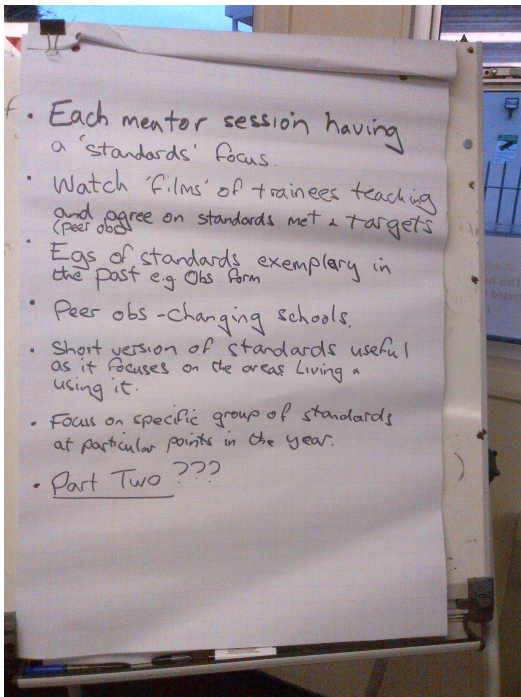 • Each mentor session having
a 'standards' focus.
• Watch 'films' of trainees teaching
and agree on standards met & targets
(peer obs)
• Egs of standards exemplary in
the past e.g Obs form
• Peer obs - changing schools.
• Short version of standards useful
as it focuses on the areas Living &
using it.
• Focus on specific group of standards
at particular points in the year.
• Part Two ???